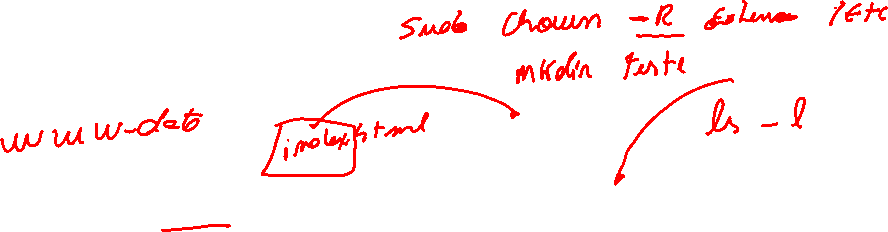 sudo chown -R /Etc
mkdir teste
www-data
index.html
ls -l